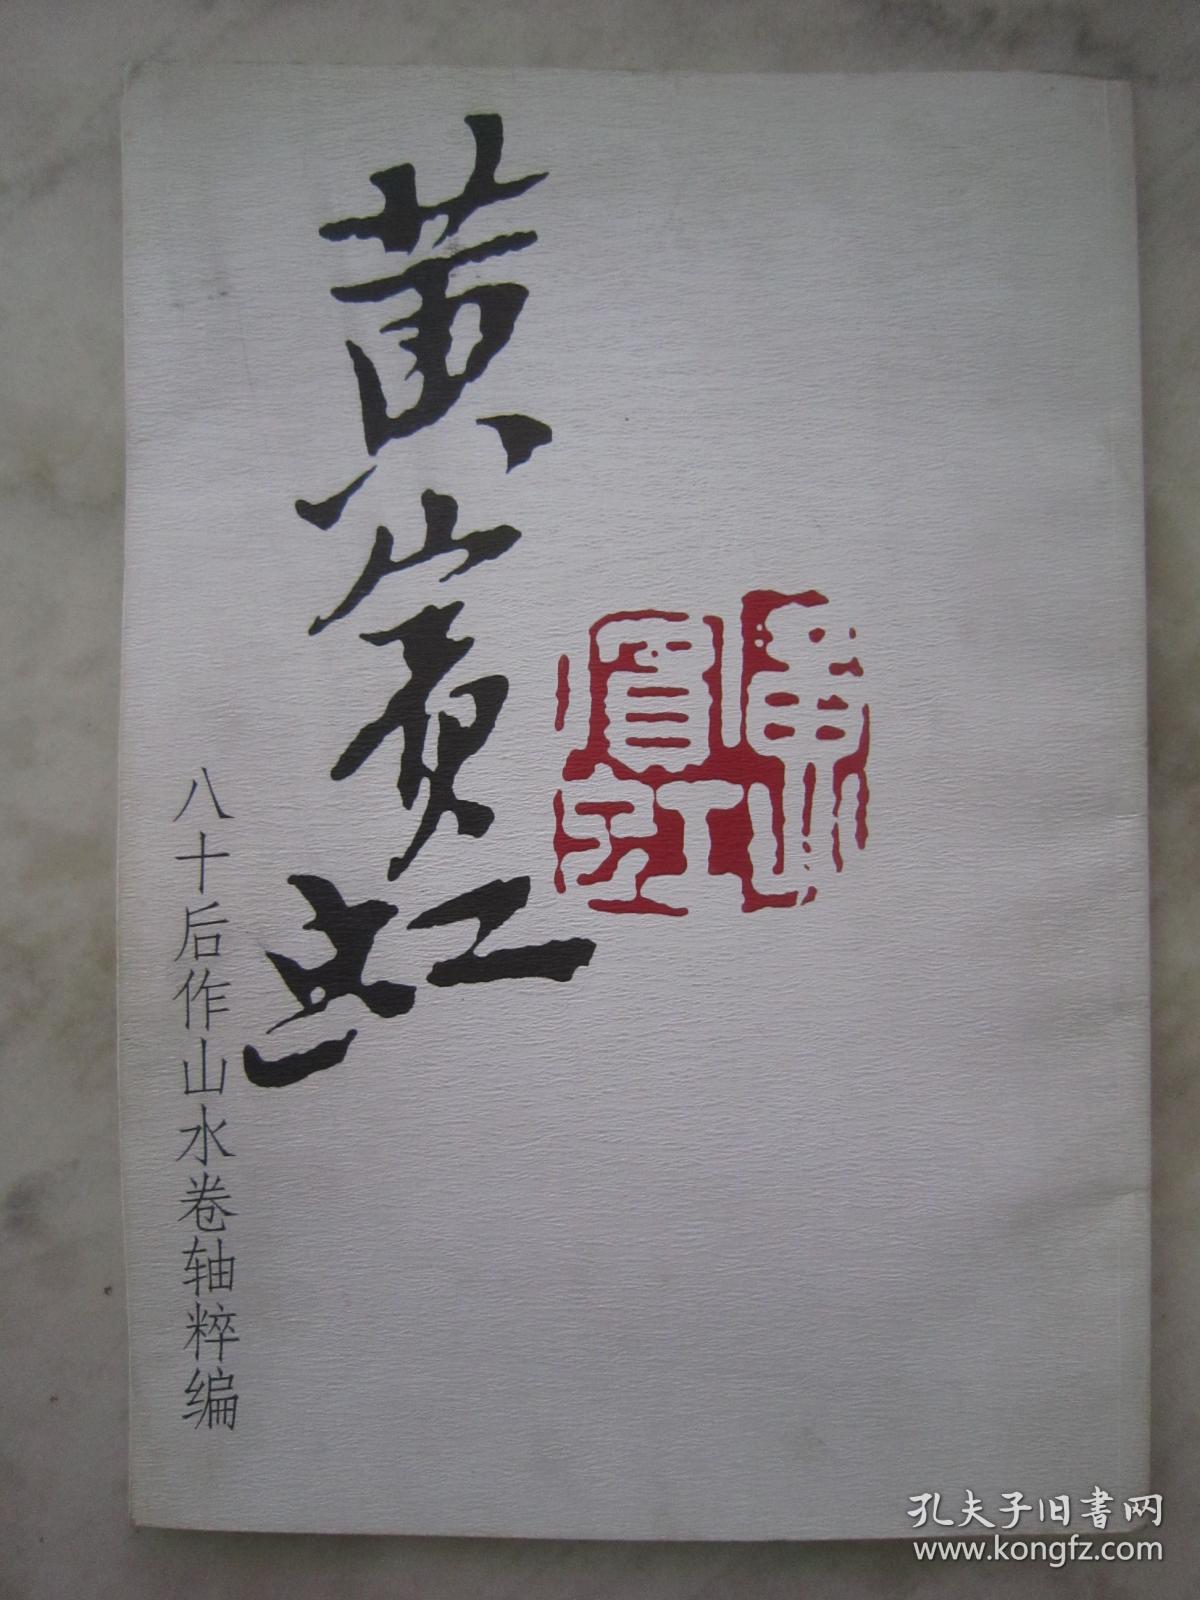 黄宾虹
八十后作山水卷轴粹编
黄賓虹
孔夫子旧書网
www.kongfz.com